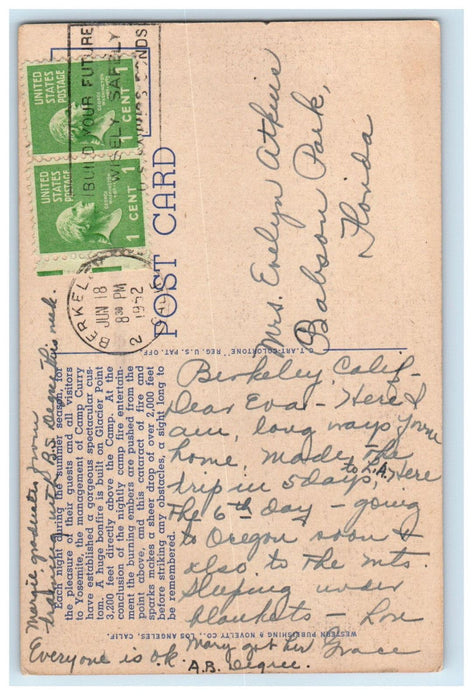 UNITED
STATES
POSTAGE
1 CENT 1
UNITED
STATES
POSTAGE
1 CENT 1
BUILD YOUR FUTURE
WISELY SAFELY
BERKEL
JUN 18
8 30 PM
1952
POST CARD
Mrs. Evelyn Atkins
Babson Park,
Florida
"C.T. ART-COLORTONE" REG. U.S. PAT. OFF.
Each night during the summer season, for
the pleasure of their guests and all visitors
to Yosemite, the management of Camp Curry
have established a gorgeous spectacular cus-
tom. A huge bonfire is built on Glacier Point
3,200 feet directly above the Camp. At the
conclusion of the nightly camp fire entertain-
ment the burning embers are pushed from the
point above, and this cataract of fire and
sparks makes a sheer drop of over 2,000 feet
before striking any obstacles, a sight long to
be remembered.
WESTERN PUBLISHING & NOVELTY CO., LOS ANGELES, CALIF.
Berkeley, Calif-
Dear Eva - Here I
am, long ways from
home. Made the
trip in 5 days to L.A., Here
the 6th day - going
to Oregon soon &
also to the Mts.
Sleeping under
blankets - Love
Grace
Mary got her
A.B. degree.
Everyone is ok.
Margie graduates from
with B.S. Degree this week.